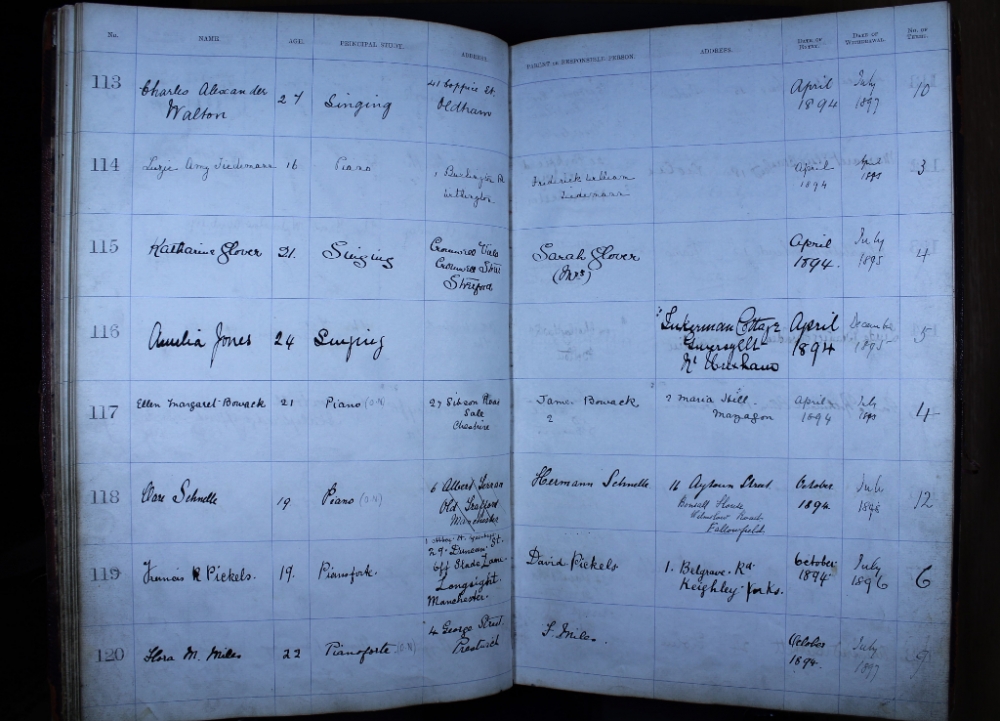 No. NAME. AGE. PRINCIPAL STUDY. ADDRESS. PARENT OR RESPONSIBLE PERSON. ADDRESS. DATE OF ENTRY. DATE OF WITHDRAWAL. No. OF TERMS.
113 Charles Alexander 27 Singing 41 Coppice St. April July 10
Walton Oldham 1894 1897
114 Amy Tiedemann 16 Piano Burlington Rd Frederick William April 3
Withington Tiedemann 1894 1895
115 Katharine Glover 21. Singing Sarah Glover April July 4
(Mrs) 1894. 1895
Stretford
116 Amelia Jones 24 Singing Inkerman Cottage April December 5
Gwersyllt 1894 1895
Nr Wrexham
117 Ellen Margaret Bowack 21 Piano (O.N) 27 Gibson Place James Bowack ? Maria Hill April July 4
Sale ? Mazagon 1894 1895
Cheshire
118 Dora Schnelle 19 Piano (O.N) 6 Albert Terrace Hermann Schnelle 16 Aytoun Street October July 12
Old Trafford House 1894 1898
Manchester Wilmslow Road
Fallowfield
119 Francis R Pickels. 19. Pianoforte. 29. Duncan St. David Pickels 1. Belgrave Rd October July 6
off Slade Lane Keighley Yorks. 1894 1896
Longsight
Manchester.
120 Flora M. Miles 22 Pianoforte (O.N) 4 George Street. S. Miles. October July 9
Prestwich 1894 1897